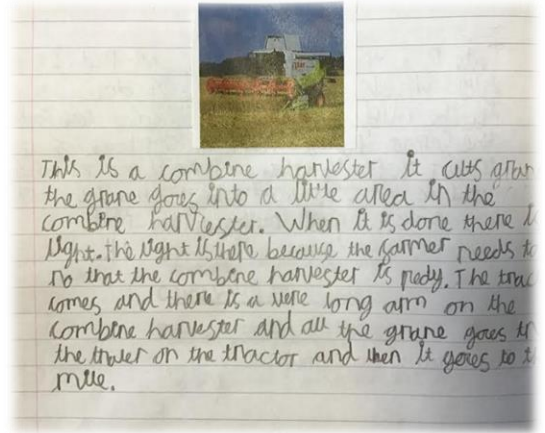 This is a combine harvester it cuts gran
the grane goes into a little area in the
combine harvester. When it is done there is
light. The light is there because the farmer needs to
no that the combine harvester is redy. The trac
comes and there is a vere long arm on the
combine harvester and all the grane goes in
the traler on the tractor and then it goes to th
mile.